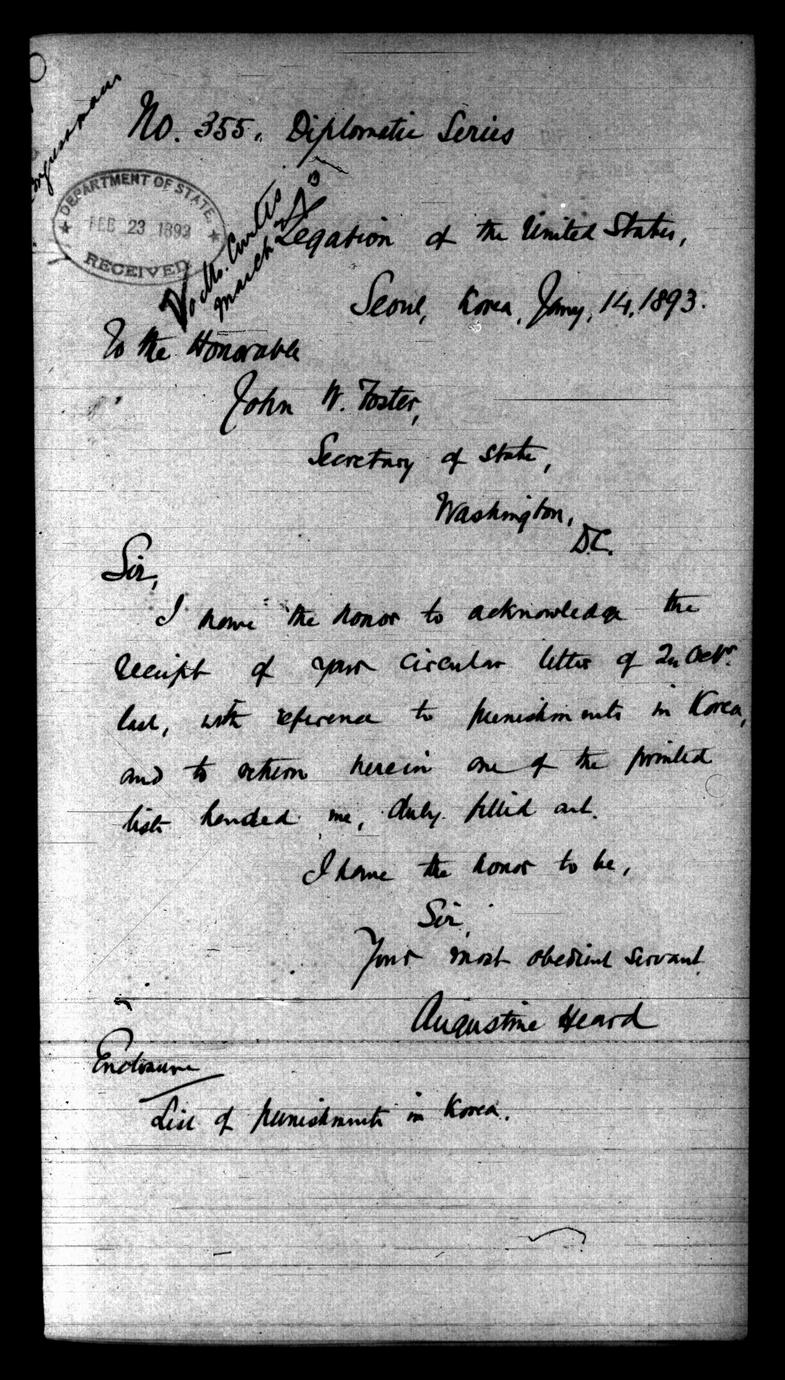 No. 355. Diplomatic Series
DEPARTMENT OF STATE
FEB 23 1893
RECEIVED
To Mr. Curtis
March
Legation of the United States,
Seoul, Korea, Jany. 14, 1893.
To the Honorable
John W. Foster,
Secretary of State,
Washington,
D.C.
Sir,
I have the honor to acknowledge the
receipt of your circular letter of Octr.
last, with reference to punishments in Korea,
and to return herein one of the printed
lists handed me, duly filled out.
I have the honor to be,
Sir,
Your most obedient servant
Augustine Heard
Enclosure
List of punishments in Korea.